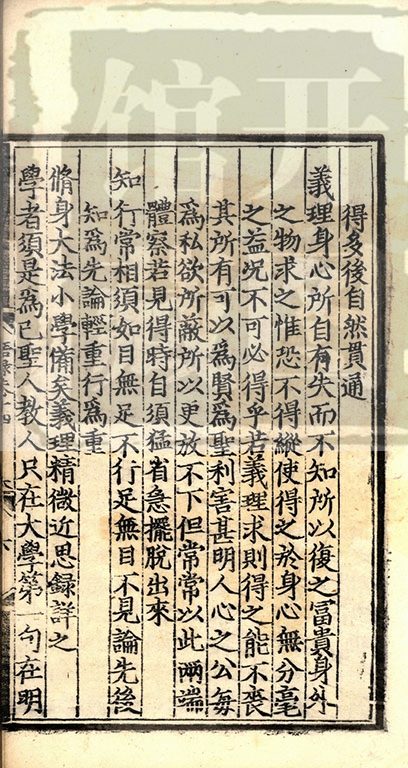 得多後自然貫通
義理身心所自有失而不知所以復之富貴身外
之物求之惟恐不得縱使得之於身心無分毫
之益況不可必得乎若義理求則得之能不喪
其所有可以為賢為聖利害甚明人心之公每
為私欲所蔽所以更放不下但常常以此兩端
體察若見得時自須猛省急擺脫出來
知行常相須如目無足不行足無目不見論先後
知為先論輕重行為重
脩身大法小學備矣義理精微近思録詳之
學者須是為己聖人教人只在大學第一句在明